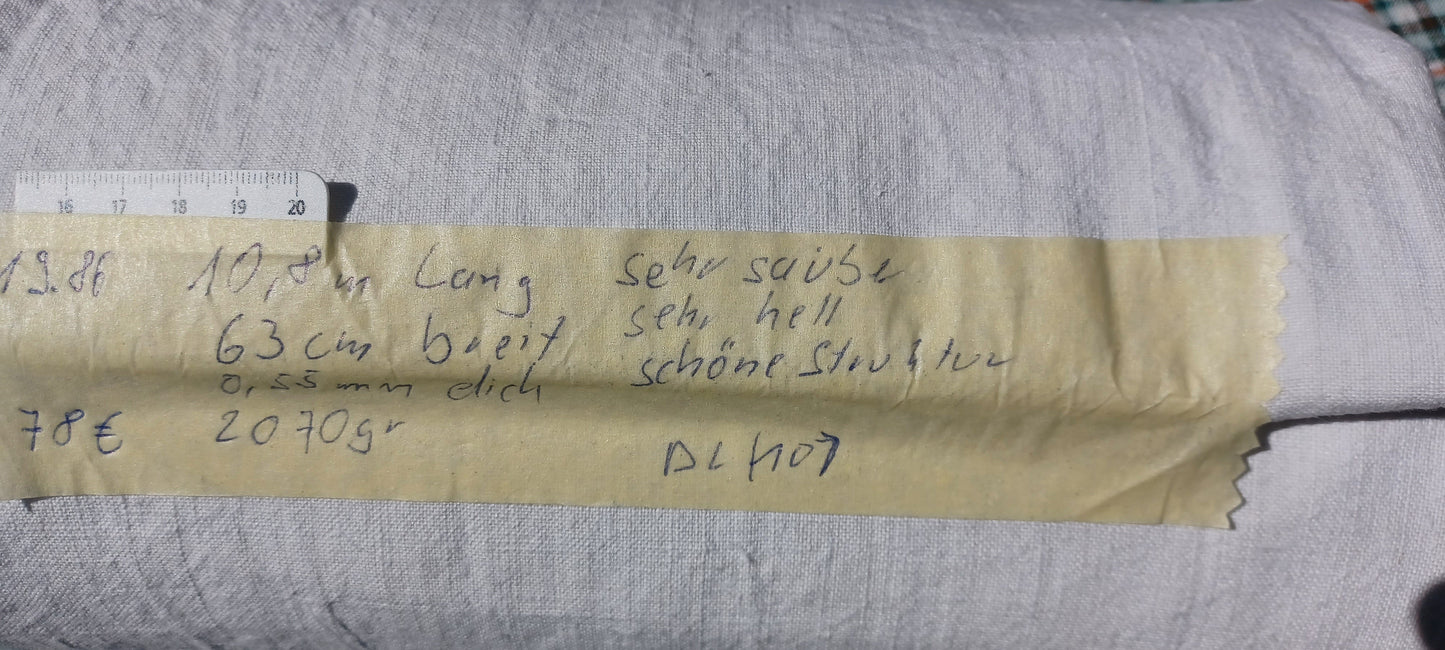 16 17 18 19 20
19.86 10,8m Lang sehr saube
63 cm breit sehr hell
0,55 mm dick schöne Struktur
78€ 2070gr